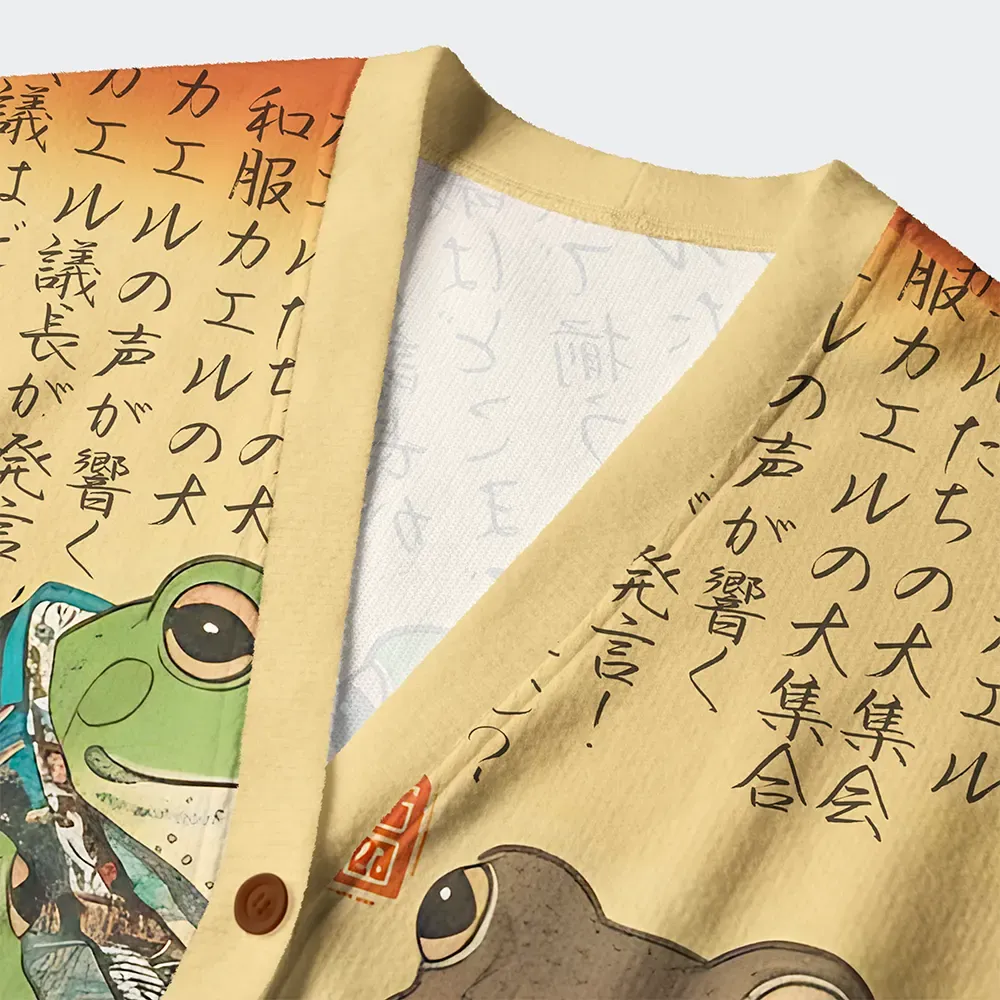 カエル
ルたちの大集会
服カエルの大集合
ルの声が響く
発言!
?
エルたちの大
和服カエルの大
カエルの声が響く
カエル議長が発言
議はど